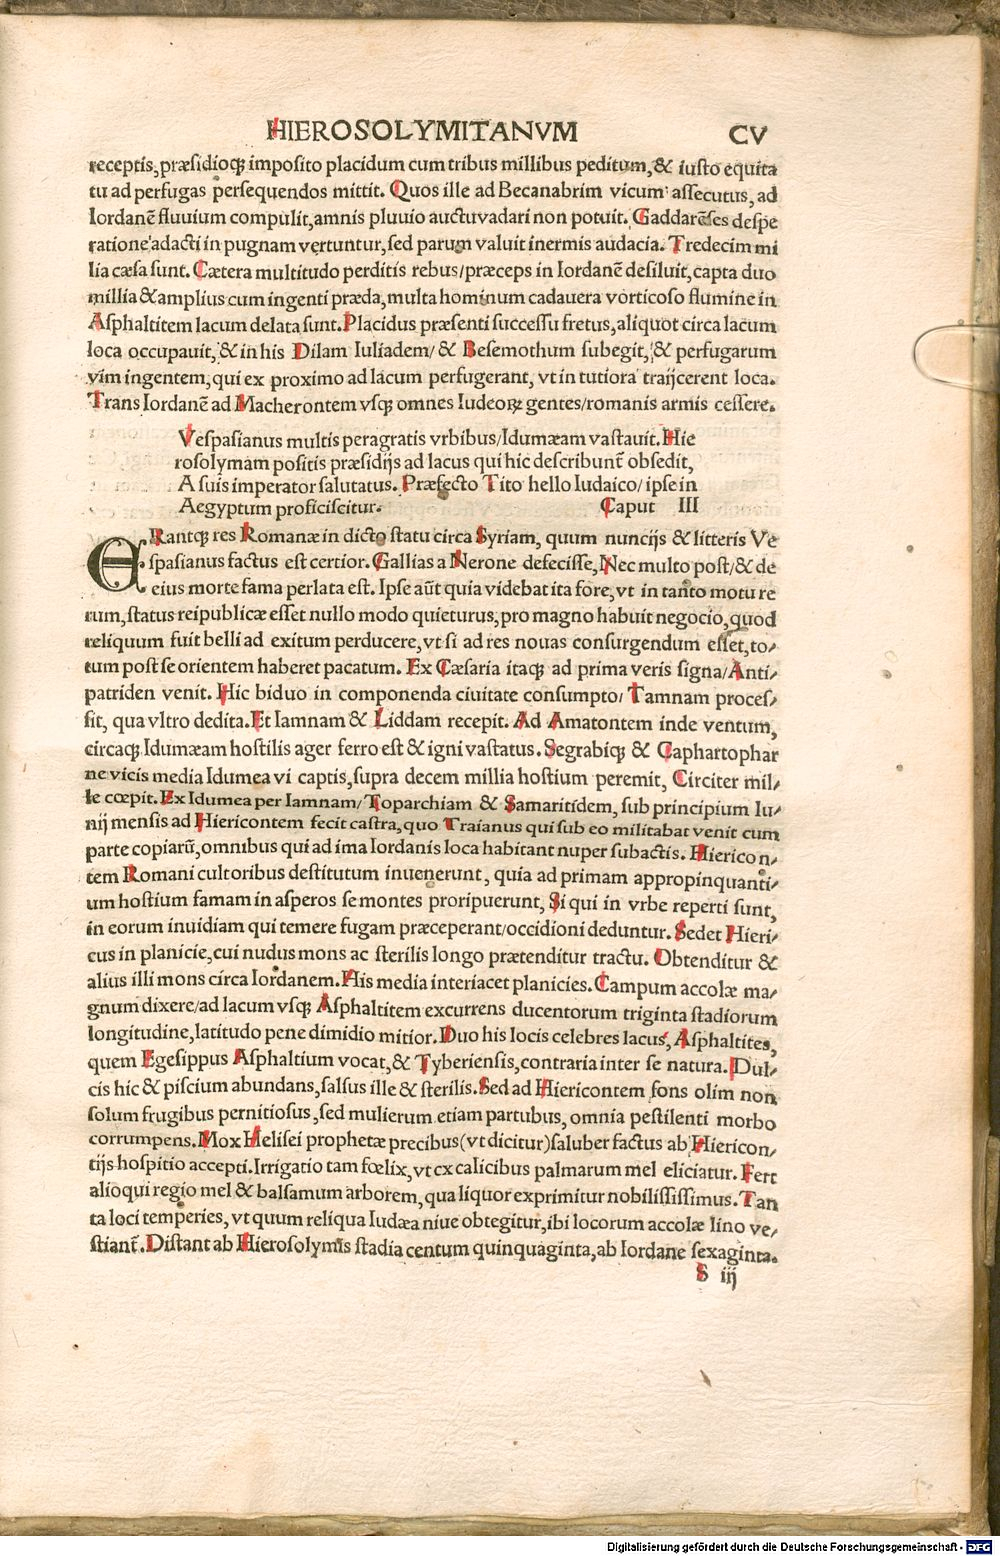 HIEROSOLYMITANVM CV
receptis, præsidioq́ꝫ imposito placidum cum tribus millibus peditum, & iusto equita
tu ad perfugas persequendos mittit. Quos ille ad Becanabrim vicum assecutus, ad
Iordanē fluuium compulit, amnis pluuio auctu vadari non potuit. Gaddarēses despe
ratione adacti in pugnam vertuntur, sed parum valuit inermis audacia. Tredecim mi
lia cæsa sunt. Cætera multitudo perditis rebus/præceps in Iordanē desiluit, capta duo
millia & amplius cum ingenti præda, multa hominum cadauera vorticoso flumine in
Asphaltitem lacum delata sunt. Placidus præsenti successu fretus, aliquot circa lacum
loca occupauit, & in his Dilam Iuliadem/& Besemothum subegit, & perfugarum
vim ingentem, qui ex proximo ad lacum perfugerant, vt in tutiora traijcerent loca.
Trans Iordanē ad Macherontem vsqꝫ omnes Iudeoꝝ gentes/romanis armis cessere.
Vespasianus multis peragratis vrbibus/Idumæam vastauit. Hie
rosolymam positis præsidijs ad lacus qui hic describunt̃ obsedit,
A suis imperator salutatus. Præfecto Tito hello Iudaico/ipse in
Aegyptum proficiscitur. Caput III
ERantqꝫ res Romanæ in dicto statu circa Syriam, quum nuncijs & litteris Ve
spasianus factus est certior. Gallias a Nerone defecisse, Nec multo post/& de
eius morte fama perlata est. Ipse aūt quia videbat ita fore, vt in tanto motu re
rum, status reipublicæ esset nullo modo quieturus, pro magno habuit negocio, quod
reliquum fuit belli ad exitum perducere, vt si ad res nouas consurgendum esset, to/
tum post se orientem haberet pacatum. Ex Cæsaria itaqꝫ ad prima veris signa/Anti/
patriden venit. Hic biduo in componenda ciuitate consumpto/Tamnam proces/
sit, qua vltro dedita. Et Iamnam & Liddam recepit. Ad Amatontem inde ventum,
circaqꝫ Idumæam hostilis ager ferro est & igni vastatus. Segrabiqꝫ & Caphartophar
ne vicis media Idumea vi captis, supra decem millia hostium peremit, Circiter mil/
le cœpit. Ex Idumea per Iamnam/Toparchiam & Samaritidem, sub principium Iu/
nij mensis ad Hiericontem fecit castra, quo Traianus qui sub eo militabat venit cum
parte copiarū, omnibus qui ad ima Iordanis loca habitant nuper subactis. Hiericon/
tem Romani cultoribus destitutum inuenerunt, quia ad primam appropinquanti/
um hostium famam in asperos se montes proripuerunt, Si qui in vrbe reperti sunt,
in eorum inuidiam qui temere fugam præceperant/occidioni deduntur. Sedet Hieri/
cus in planicie, cui nudus mons ac sterilis longo prætenditur tractu. Obtenditur &
alius illi mons circa Iordanem. His media interiacet planicies. Campum accolæ ma/
gnum dixere/ad lacum vsqꝫ Asphaltitem excurrens ducentorum triginta stadiorum
longitudine, latitudo pene dimidio mitior. Duo his locis celebres lacus, Asphaltites,
quem Egesippus Asphaltium vocat, & Tyberiensis, contraria inter se natura. Dul/
cis hic & piscium abundans, salsus ille & sterilis. Sed ad Hiericontem fons olim non
solum frugibus pernitiosus, sed mulierum etiam partubus, omnia pestilenti morbo
corrumpens. Mox Helisei prophetæ precibus (vt dicitur) saluber factus ab Hiericon/
tijs hospitio accepti. Irrigatio tam fœlix, vt ex calicibus palmarum mel eliciatur. Fert
alioqui regio mel & balsamum arborem, qua liquor exprimitur nobilissimus. Tan
ta loci temperies, vt quum reliqua Iudæa niue obtegitur, ibi locorum accolæ lino ve/
stiant̃. Distant ab Hierosolymis stadia centum quinquaginta, ab Iordane sexaginta.
S iij
Digitalisierung gefördert durch die Deutsche Forschungsgemeinschaft - DFG